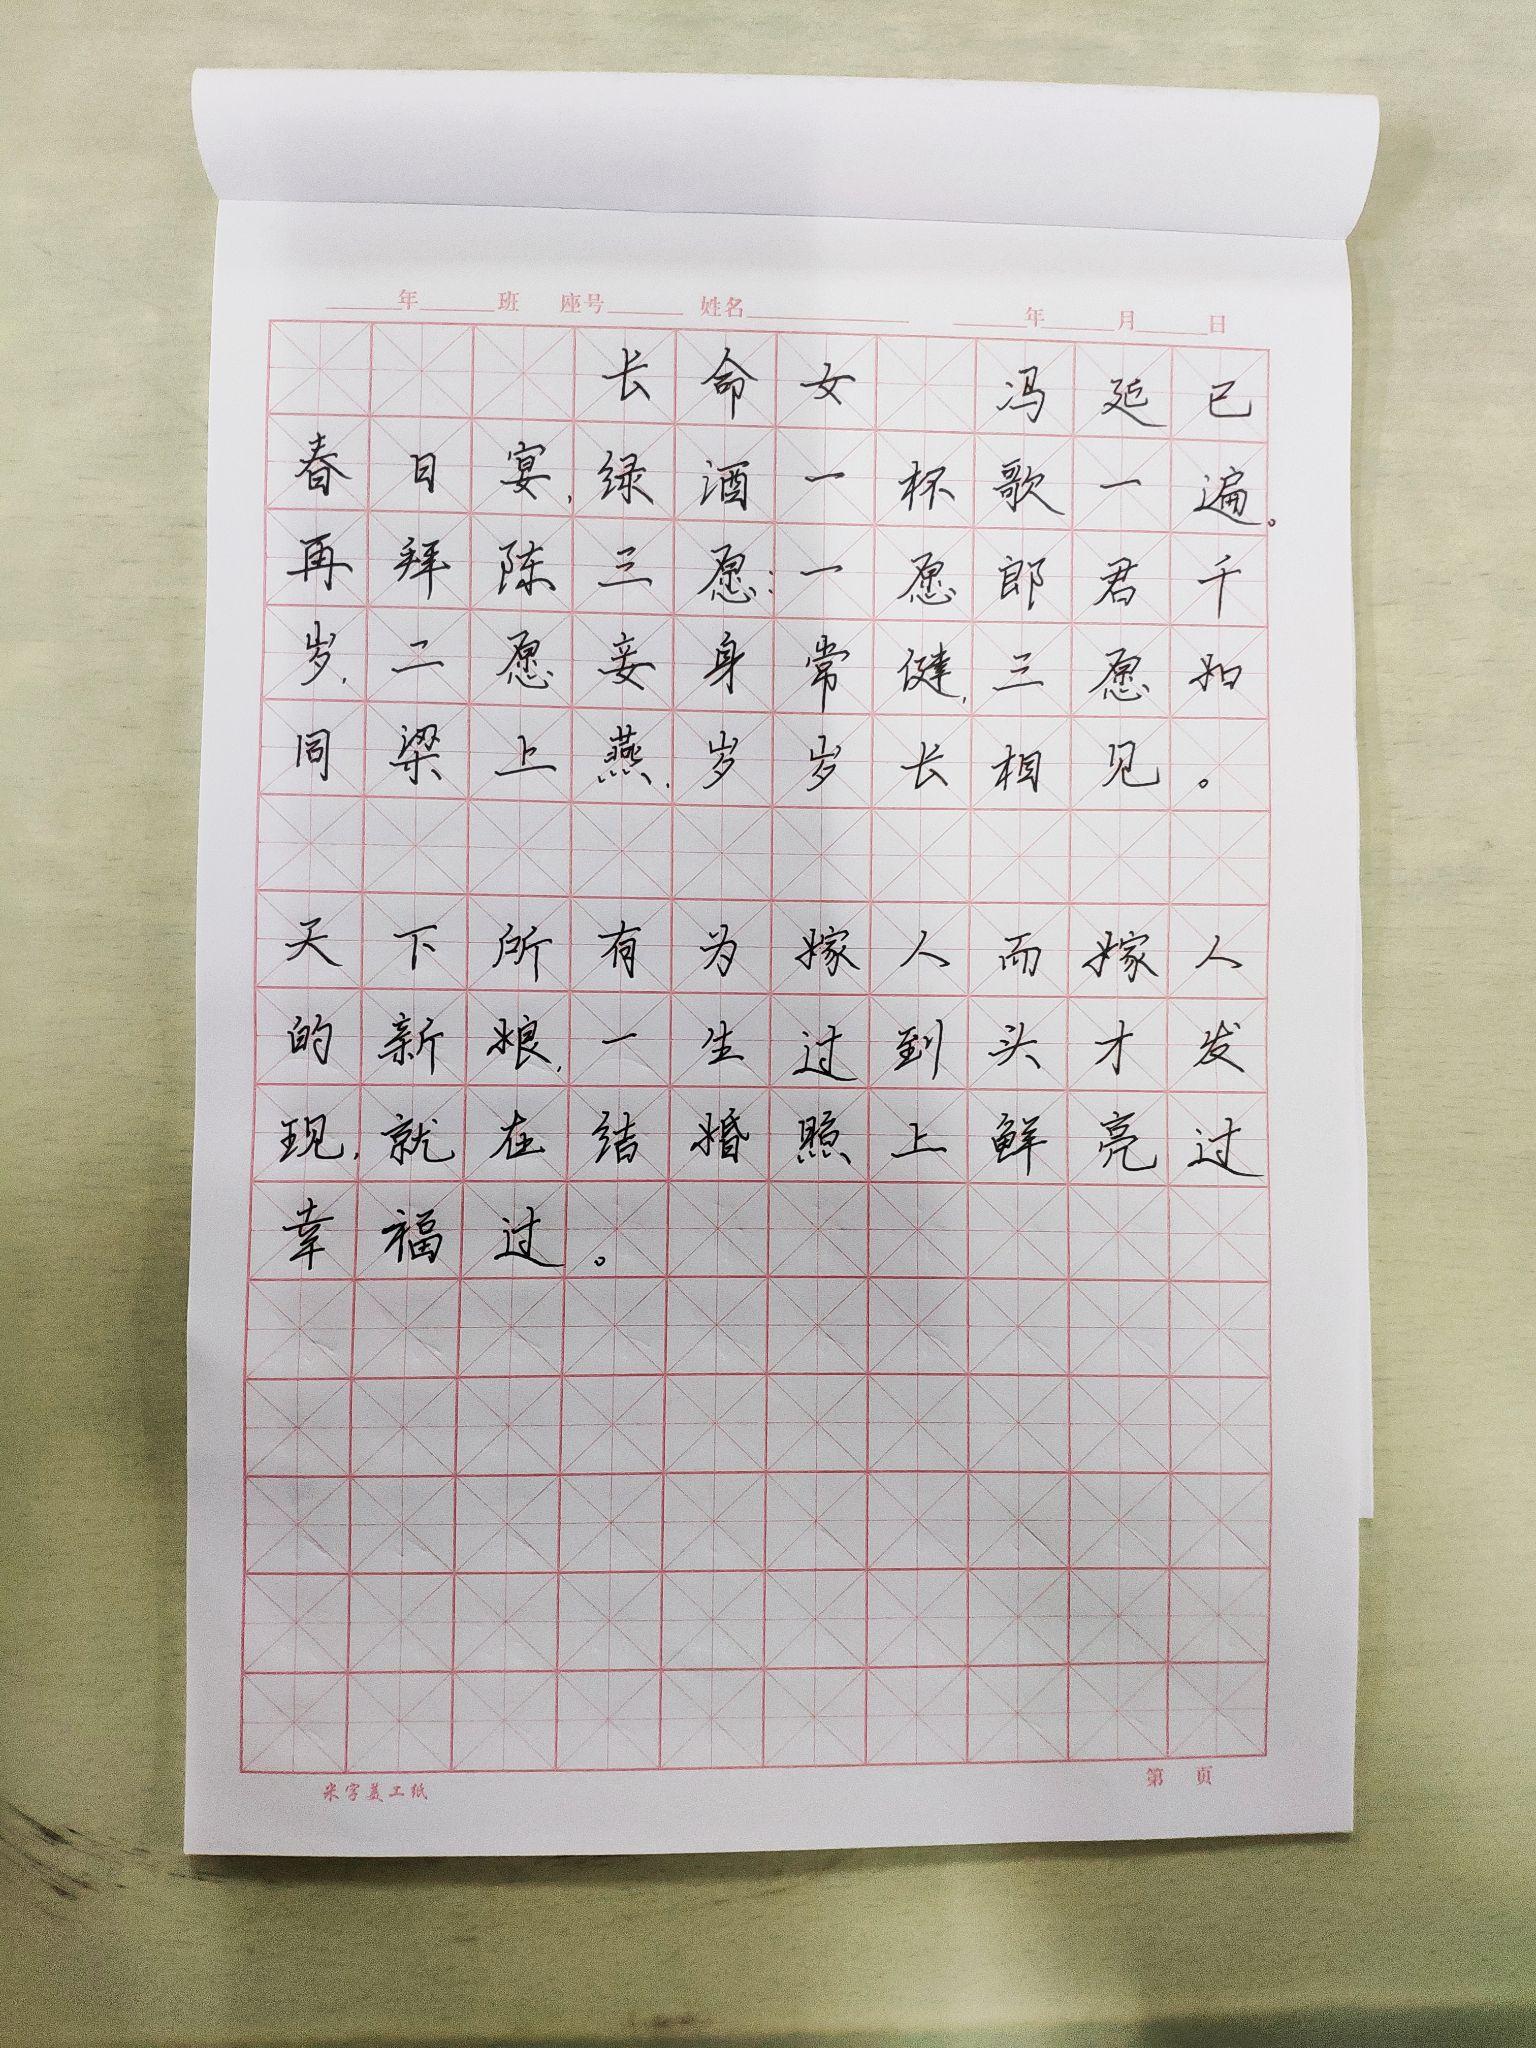 ____年____班 座号____ 姓名________ ____年____月____日
长命女 冯延已
春日宴,绿酒一杯歌一遍。
再拜陈三愿:一愿郎君千
岁,二愿妾身常健,三愿如
同梁上燕,岁岁长相见。
天下所有为嫁人而嫁人
的新娘,一生过到头才发
现,就在结婚照上鲜亮过
幸福过。
米字美工纸 第 页